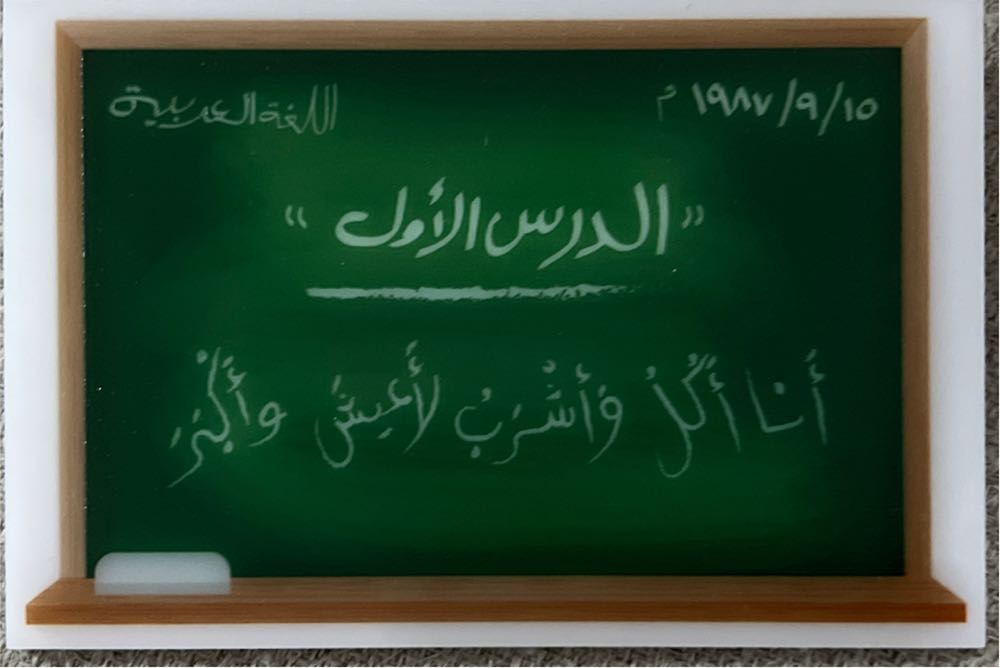 ١٩٨٧/٩/١٥ م اللغة العربية
"الدرس الأول"
أنا أَكُلُ وَأَشْرَبُ لأَعيشَ وأَكْبَرَ